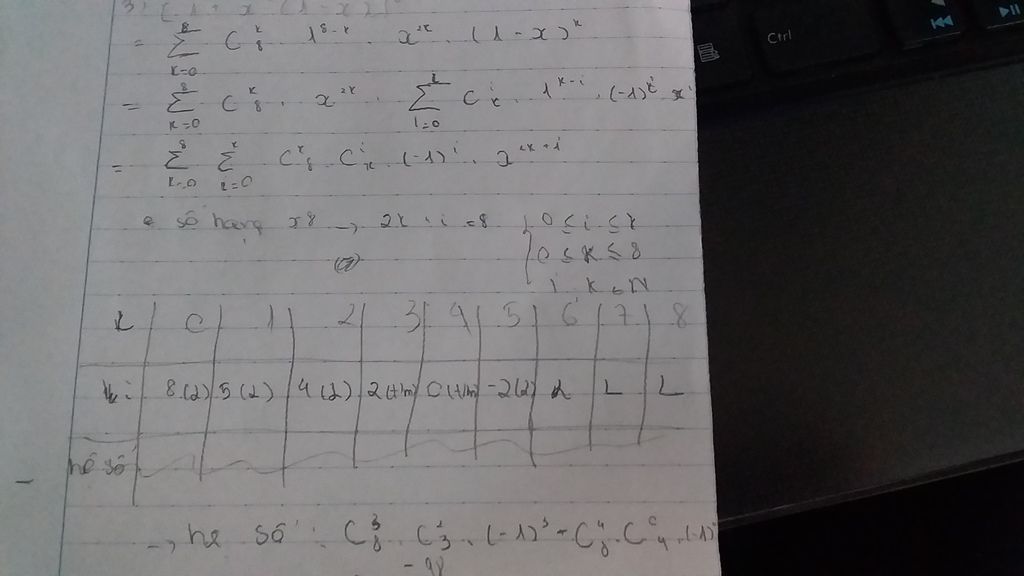 3) (1 + x² (1 - x))⁸
= ∑_{k=0}^{8} C_8^k . 1^{8-k} . x^{2k} . (1 - x)^k
= ∑_{k=0}^{8} C_8^k . x^{2k} . ∑_{i=0}^{k} C_k^i . 1^{k-i} . (-1)^i x^i
= ∑_{k=0}^{8} ∑_{i=0}^{k} C_8^k C_k^i . (-1)^i . x^{2k+i}
số hạng x8 → 2k + i = 8 { 0 ≤ i ≤ k
0 ≤ k ≤ 8
i, k ∈ N
k | 0 | 1 | 2 | 3 | 4 | 5 | 6 | 7 | 8
i: | 8(L) | 5(L) | 4(L) | 2(t/m) | 0(t/m) | -2(L) | L | L | L
hệ số
→ hệ số : C_8^3 . C_3^2 . (-1)^3 + C_8^4 . C_4^0 . (-1)
Ctrl